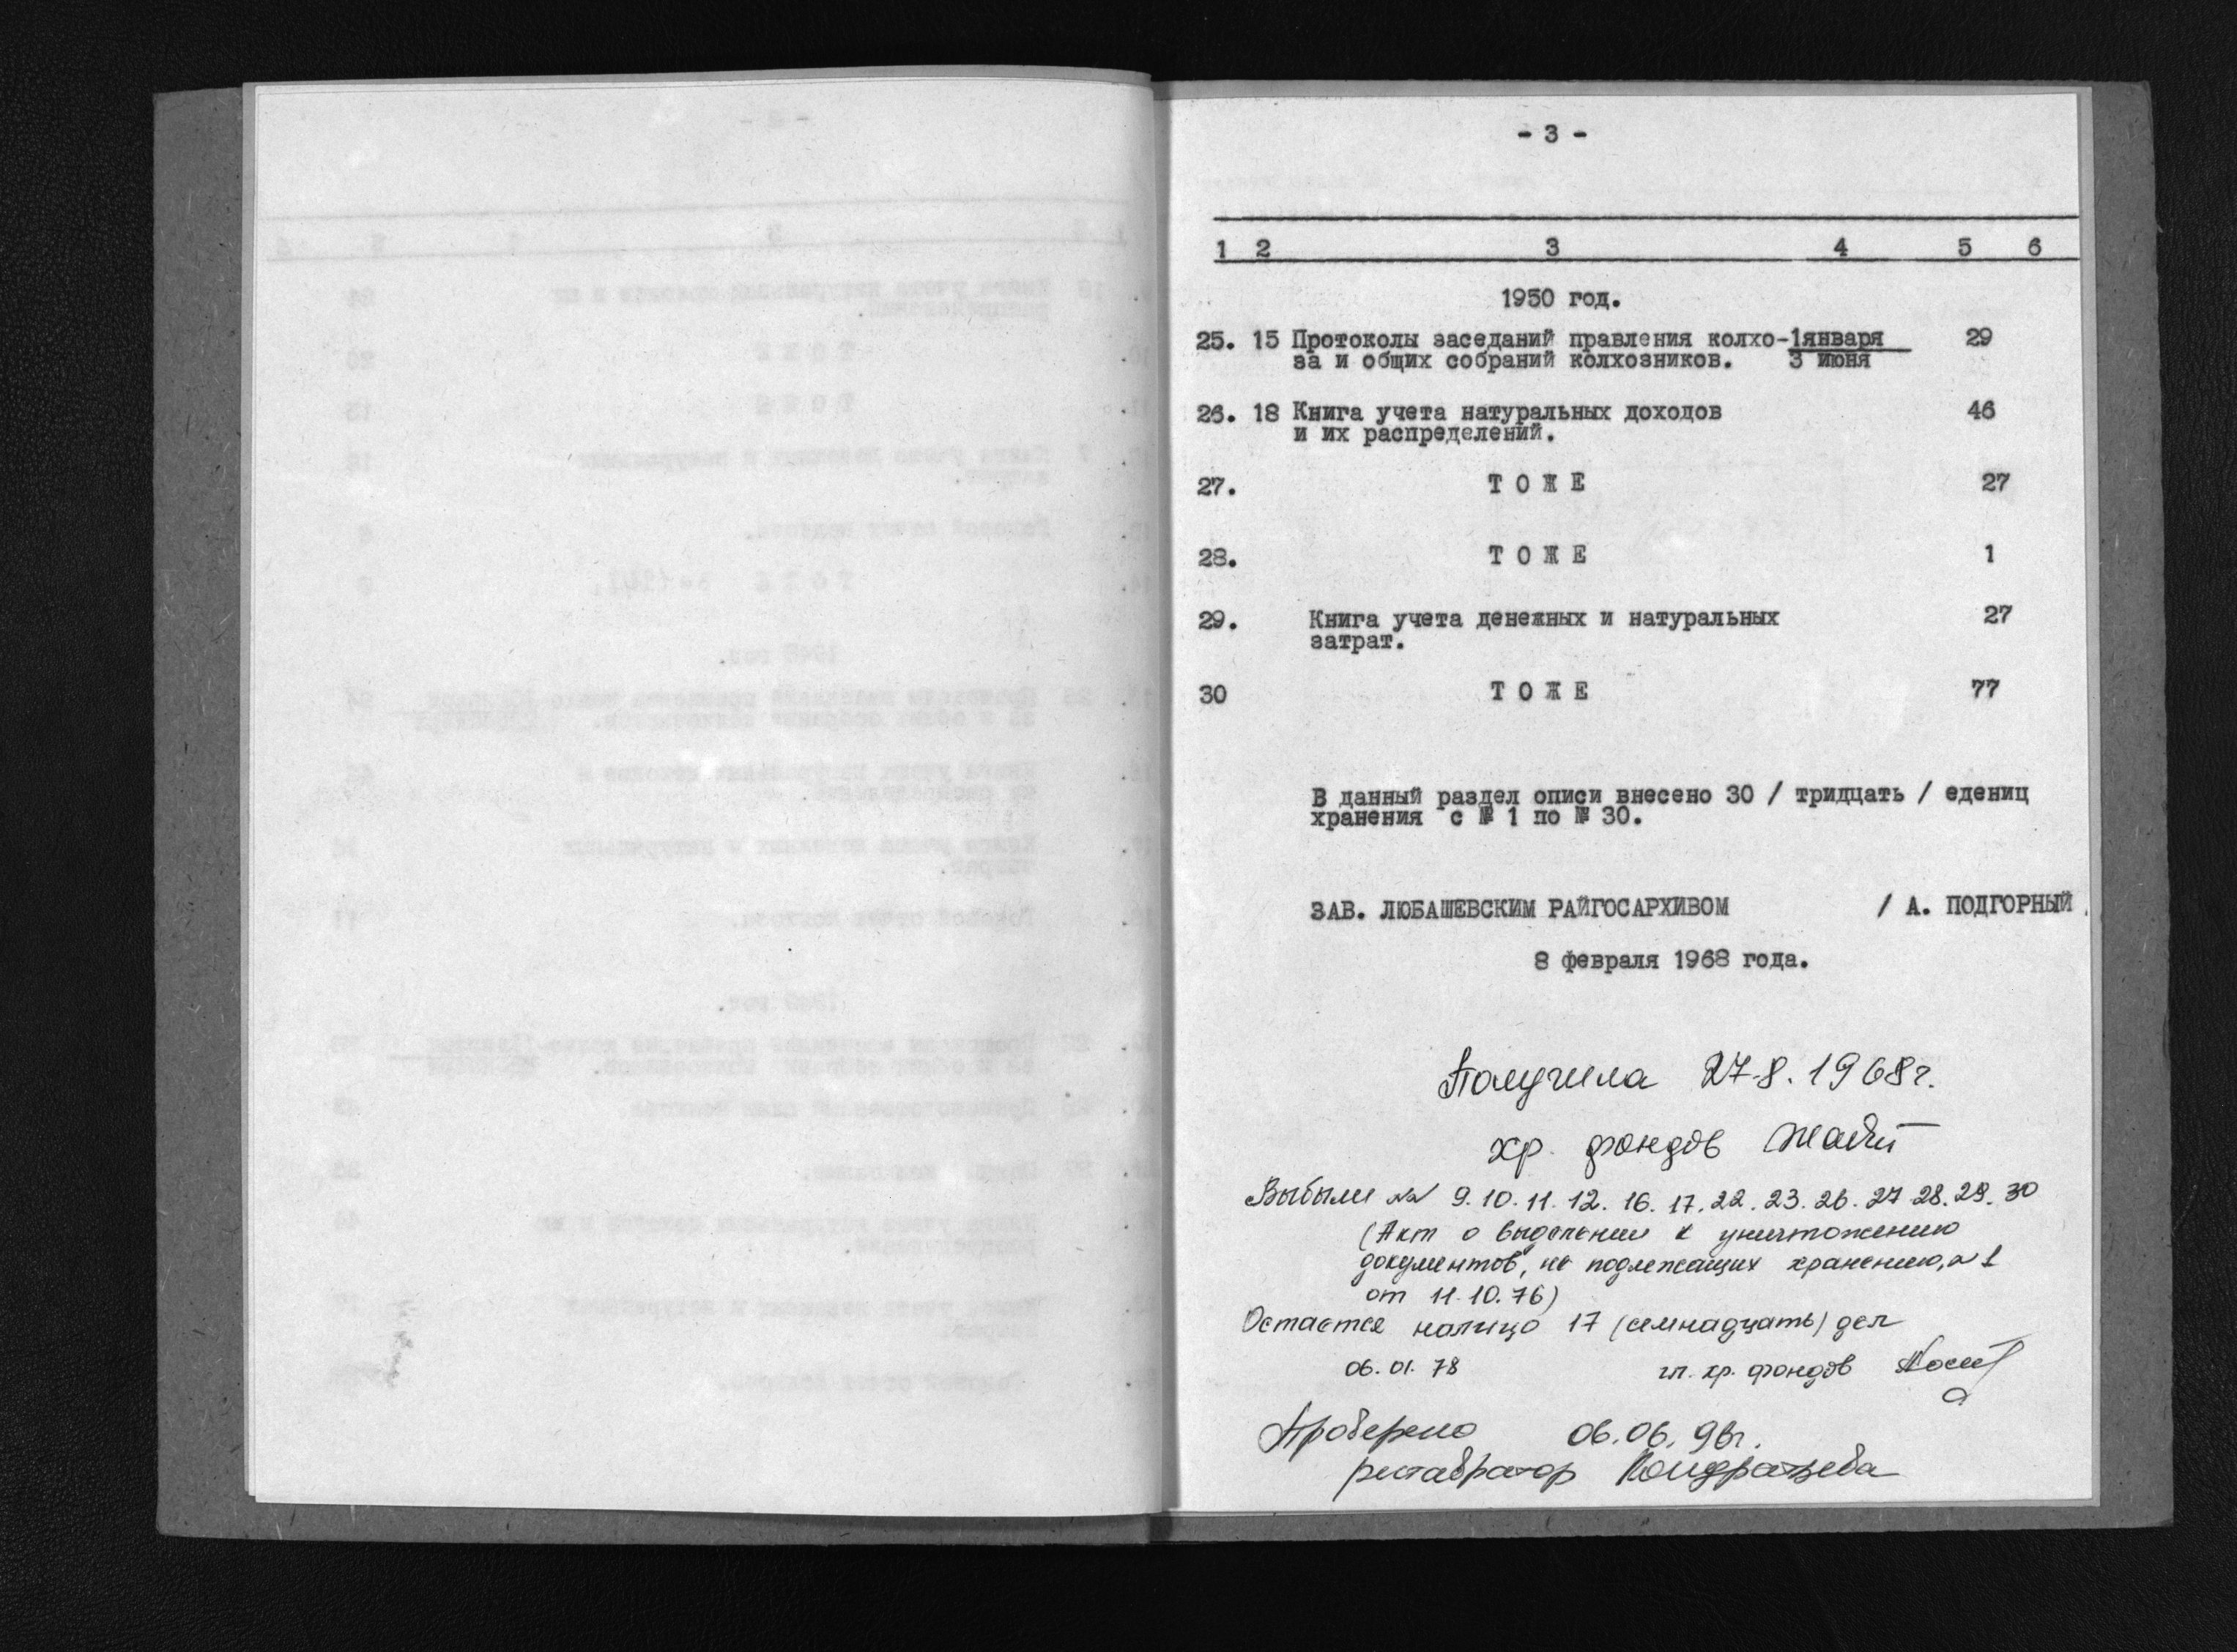 - 3 -
1 2 3 4 5 6
1950 год.
25. 15 Протоколы заседаний правления колхо- 1января 29
за и общих собраний колхозников. 3 июня
26. 18 Книга учета натуральных доходов 46
и их распределений.
27. Т О Ж Е 27
28. Т О Ж Е 1
29. Книга учета денежных и натуральных 27
затрат.
30 Т О Ж Е 77
В данный раздел описи внесено 30 / тридцать / едениц
хранения с № 1 по № 30.
ЗАВ. ЛЮБАШЕВСКИМ РАЙГОСАРХИВОМ / А. ПОДГОРНЫЙ
8 февраля 1968 года.
Получила 27.8.1968г.
хр. фондов
Выбыли №№ 9. 10. 11. 12. 16. 17. 22. 23. 26. 27 28. 29. 30
(Акт о выделении к уничтожению
документов, не подлежащих хранению, № 1
от 11.10.76)
Остается налицо 17 (семнадцать) дел
06.01.78 гл. хр. фондов
Проверено 06.06.96г.
реставратор Кондратьева